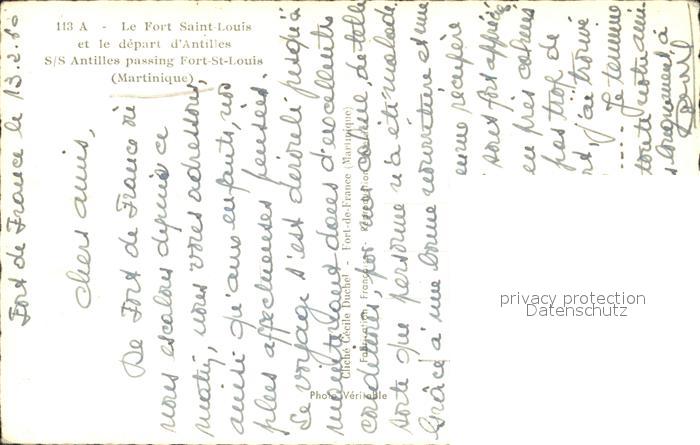 113 A - Le Fort Saint-Louis
et le départ d'Antilles
S/S Antilles passing Fort-St-Louis
(Martinique)
Fort de France le 13.2.60
Chers amis,
De Fort de France où
nous escalons depuis ce
matin, nous vous adressons,
ainsi qu'aux enfants, nos
plus affectueuses pensées.
Le voyage s'est déroulé jusqu'à
maintenant dans d'excellentes
conditions, pas de
sorte que personne n'a été malade
Grâce à une bonne nourriture et une
enne
sous fort
en très calmes
pas trop de
j'ai trouvé
Je termine
toute notre ami
Cliché Cécile Duchel - Fort-de-France (Martinique)
Fabrication Française - Reproduction
Photo Véritable
privacy protection
Datenschutz